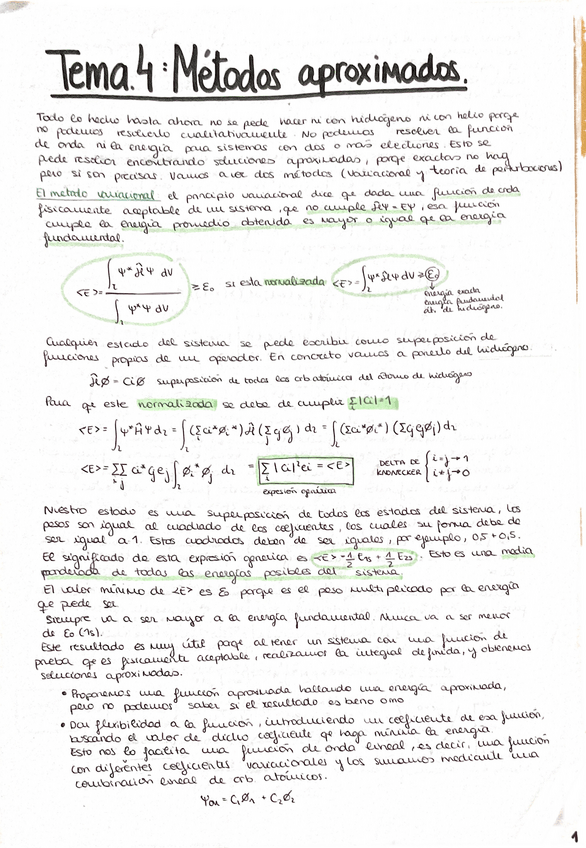 Tema.4: Métodos aproximados.
Todo lo hecho hasta ahora no se pede hacer ni con hidrógeno ni con helio porqe
no podemos resolverlo cualitativamente. No podemos resolver la función
de onda ni la energía para sistemas con dos o mas electrones. Esto se
pede resolver encontrando soluciones aproximadas, porqe exactas no hay
pero si son precisas. Vamos a ver dos métodos (variacional y teoría de perturbaciones)
El metodo variacional el principio variacional dice que dada una función de onda
físicamente aceptable de un sistema, qe no cumple ĤΨ = EΨ, esa función
cumple la energía promedio obtenida es mayor o igual qe la energía
fundamental.
<E> = ∫ Ψ* Ĥ Ψ dV / ∫ Ψ* Ψ dV ≥ E₀ si esta normalizada <E> = ∫ Ψ* Ĥ Ψ dV ≥ E₀
energía exacta
energía fundamental
át. de hidrógeno.
Cualquier estado del sistema se pede escribir como superposición de
funciones propias de un operador. En concreto vamos a ponerlo del hidrógeno.
ĤØ = CiØ superposición de todos los orb atómica del átomo de hidrógeno
Para qe este normalizada se debe de cumplir Σ|Ci|=1
<E> = ∫ Ψ* Ĥ Ψ dz = ∫ (Σ ci* Øi*) Ĥ (Σ cj Øj) dz = ∫ (Σ ci* Øi*) (Σ cj ej Øj) dz
<E> = ΣΣ ci* cj ej ∫ Øi* Øj dz = Σ |Ci|² ei = <E>
expresión genérica
DELTA DE KRONECKER { i=j → 1
i≠j → 0
Nuestro estado es una superposición de todos los estados del sistema, los
pesos son igual al cuadrado de los coeficientes, los cuales su forma debe de
ser igual a 1. Estos cuadrados deben de ser iguales, por ejemplo, 0,5 + 0,5.
El significado de esta expresión generica es <E> = 1/2 E1s + 1/2 E2s. Esto es una media
ponderada de todas las energías posibles del sistema.
El valor mínimo de <E> es E₀ porque es el peso multiplicado por la energía
qe puede ser
Siempre va a ser mayor a la energía fundamental. Nunca va a ser menor
de E₀ (1s).
Este resultado es muy útil porqe al tener un sistema con una función de
prueba qe es físicamente aceptable, realizamos la integral definida, y obtenemos
soluciones aproximadas.
• Proponemos una función aproximada hallando una energía aproximada,
pero no podemos saber si el resultado es beno omo
• Dar flexibilidad a la función, introduciendo un coeficiente de esa función,
buscando el valor de dicho coeficiente qe haga mínima la energía.
Esto nos lo facilita una función de onda lineal, es decir, una función
con diferentes coeficientes variacionales y los sumamos mediante una
combinación lineal de orb atómicos.
Ψou = C₁Ø₁ + C₂Ø₂
1